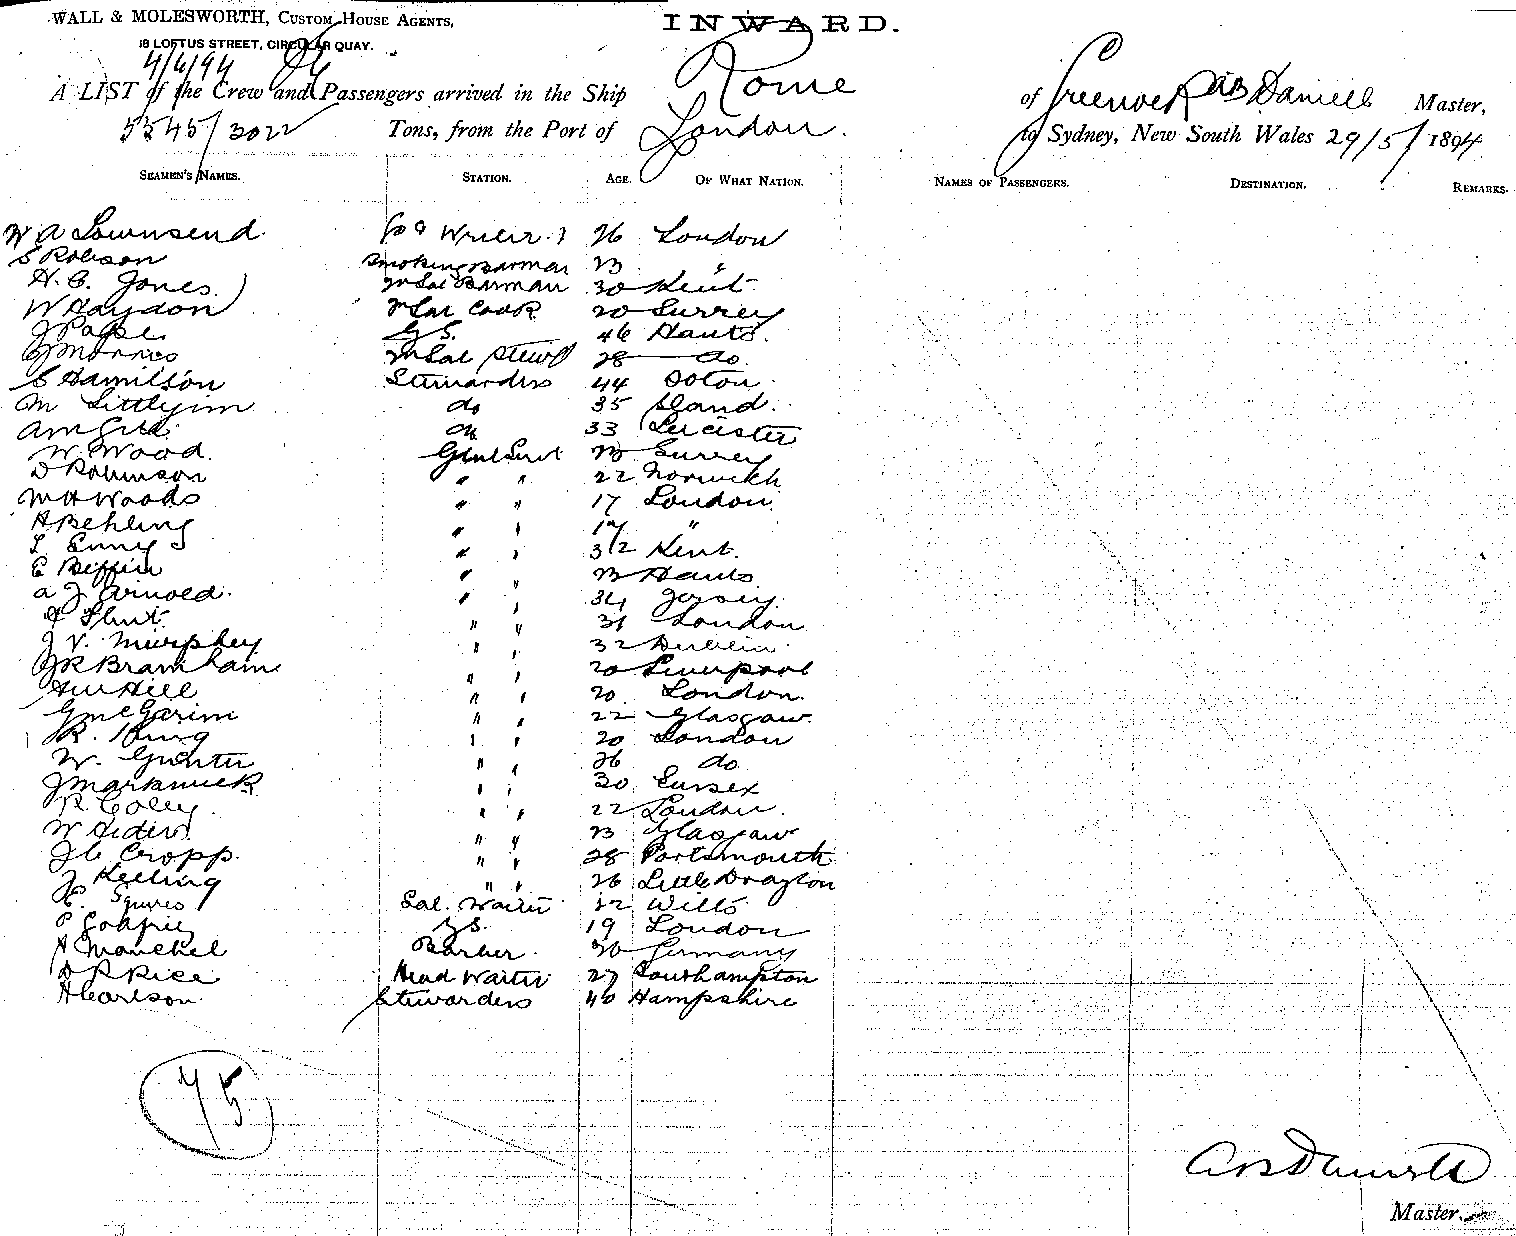 WALL & MOLESWORTH, CUSTOM HOUSE AGENTS,
18 LOFTUS STREET, CIRCULAR QUAY.
INWARD.
4/6/94
A LIST of the Crew and Passengers arrived in the Ship Rome of Greenock A B Daniell Master,
5545/3022 Tons, from the Port of London. to Sydney, New South Wales 29/5/1894
SEAMEN'S NAMES. STATION. AGE. OF WHAT NATION. NAMES OF PASSENGERS. DESTINATION. REMARKS.
W A Townsend 26 London
S Robson Smoking Barman 23 "
H. C. Jones 2 Sal Barman 30 Kent
W Haydon 2 Sal Cook 20 Surrey
J Page G.S. 46 Hants.
J Morris 2 Sal Stewd 28 do
S Hamilson Stewardess 44 Soton
M Littlejim do 35
A M do 33 Leicester
W. Wood. Genl Servt 23 Surrey
D Robinson " " 22 Norwich
W H Woods " " 17 London
A Behling " " 17 "
Enny " " 32 Kent.
E Biffin " " 23 Hants
A J Arnold " " 34 Jersey
Flint " " 31 London
J V. Murphey " " 32 Dublin
J R Bramham " " 20 Liverpool
A W Hill " " 20 London
G McGarim " " 22 Glasgow
R. King " " 20 London
W. Gunter " " 26 do
J Markwick " " 30 Sussex
R Coley " " 22 London
W " " 23 Glasgow
J C Cropp. " " 28 Portsmouth
J Keeling " " 26 Little Drayton
Squires Sal. Waiter Wilts
P Godfrey G.S. 19 London
A Manchel Barber 30 Germany
D R Rice Head Waiter 27 Southampton
A Carlson Stewardess 40 Hampshire
75
A B Daniell
Master.